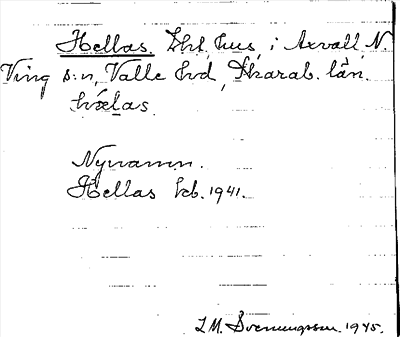 Hellas. Lht, hus, i Axvall, N.
Ving s:n, Valle hd, Skarab. län.
hælas.
Nynamn.
Hellas Ecb. 1941.
L.M. Svenungsson 1945.